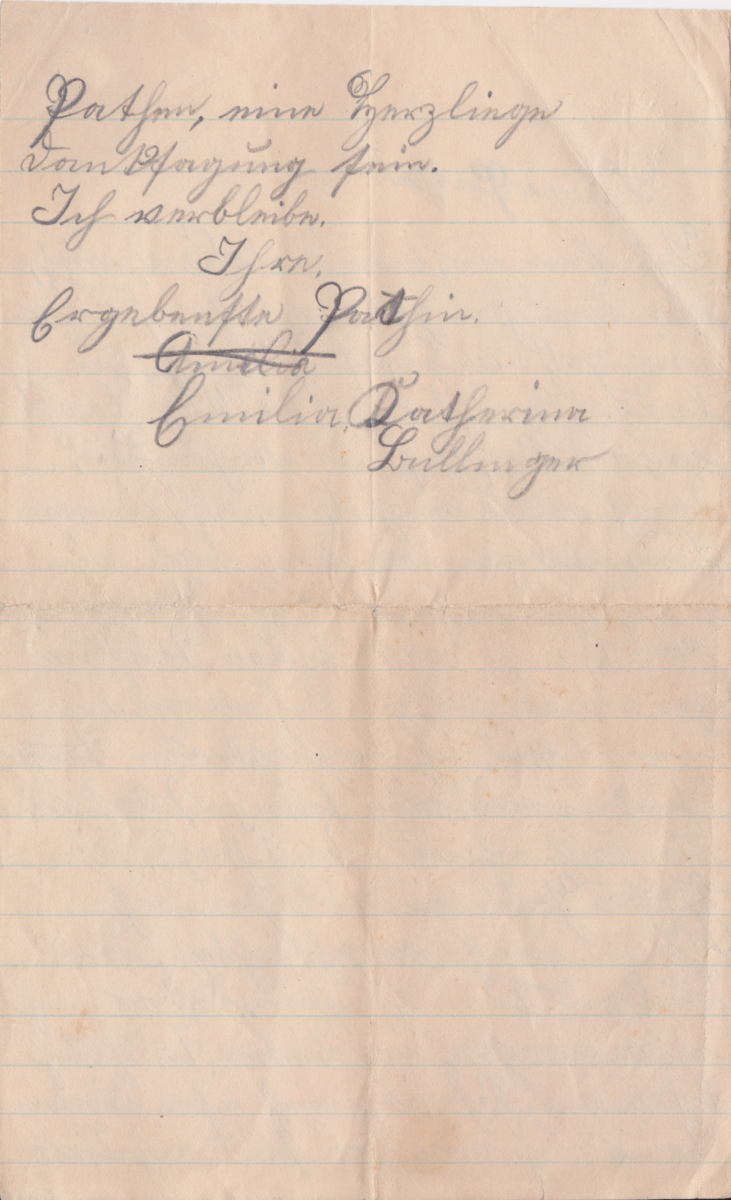 Pathen, eine Herzliege
Danksagung sein.
Ich verbleibe.
Ihre.
Ergebenste Pathin.
Amelia
Emilia, Katherina
Bullinger